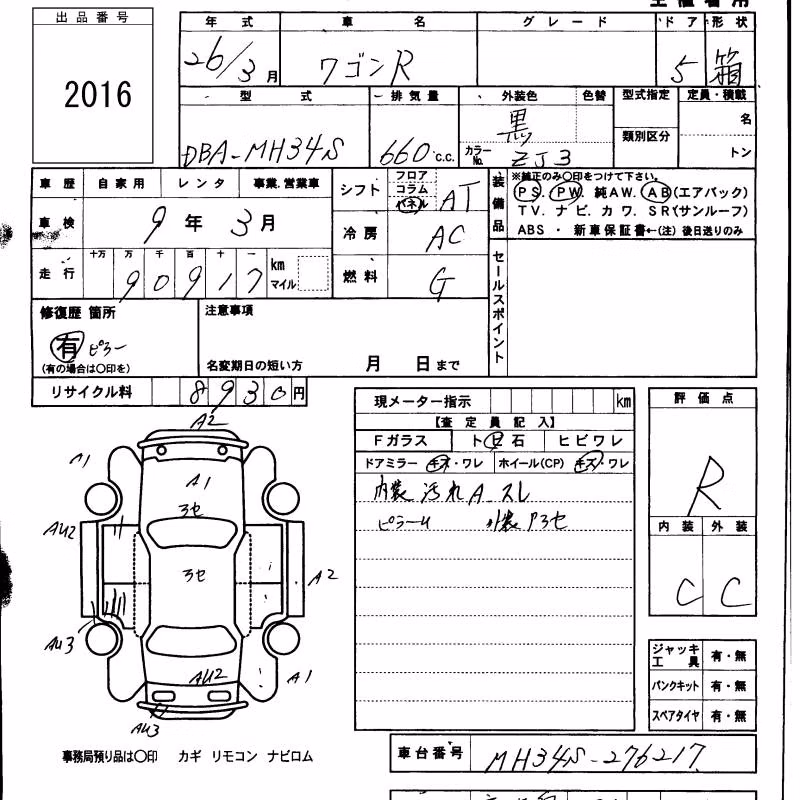 出品番号
2016
年式 車名 グレード ドア 形状
26/3月 ワゴンR 5 箱
型式 排気量 外装色 色替 型式指定 定員・積載
DBA-MH34S 660c.c. 黒 類別区分 名
カラーNo. ZJ3 トン
車歴 自家用 レンタ 事業.営業車
シフト フロア コラム パネル AT
装備品 ※純正のみ○印をつけて下さい。
PS. PW. 純AW. AB(エアバック)
TV. ナビ. カワ. SR(サンルーフ)
ABS ・ 新車保証書←(注) 後日送りのみ
車検 9年3月
冷房 AC
走行 十万 万 千 百 十 一 km マイル
90917
燃料 G
セールスポイント
修復歴 箇所
有 ピラー
(有の場合は○印を)
注意事項
名変期日の短い方 月 日まで
リサイクル料 8930円
現メーター指示 km
【査定員記入】
Fガラス ト ビ 石 ヒビワレ
ドアミラー キズ・ワレ ホイール(CP) キズ・ワレ
内装 汚れ A スレ
評価点
R
内装 外装
C C
A2
A1
A1
ヌセ
AU2
ヌセ
A2
AU3
AU2
A1
AU3
ジャッキ工具 有・無
パンクキット 有・無
スペアタイヤ 有・無
事務局預り品は○印 カギ リモコン ナビロム
車台番号 MH34S-276217